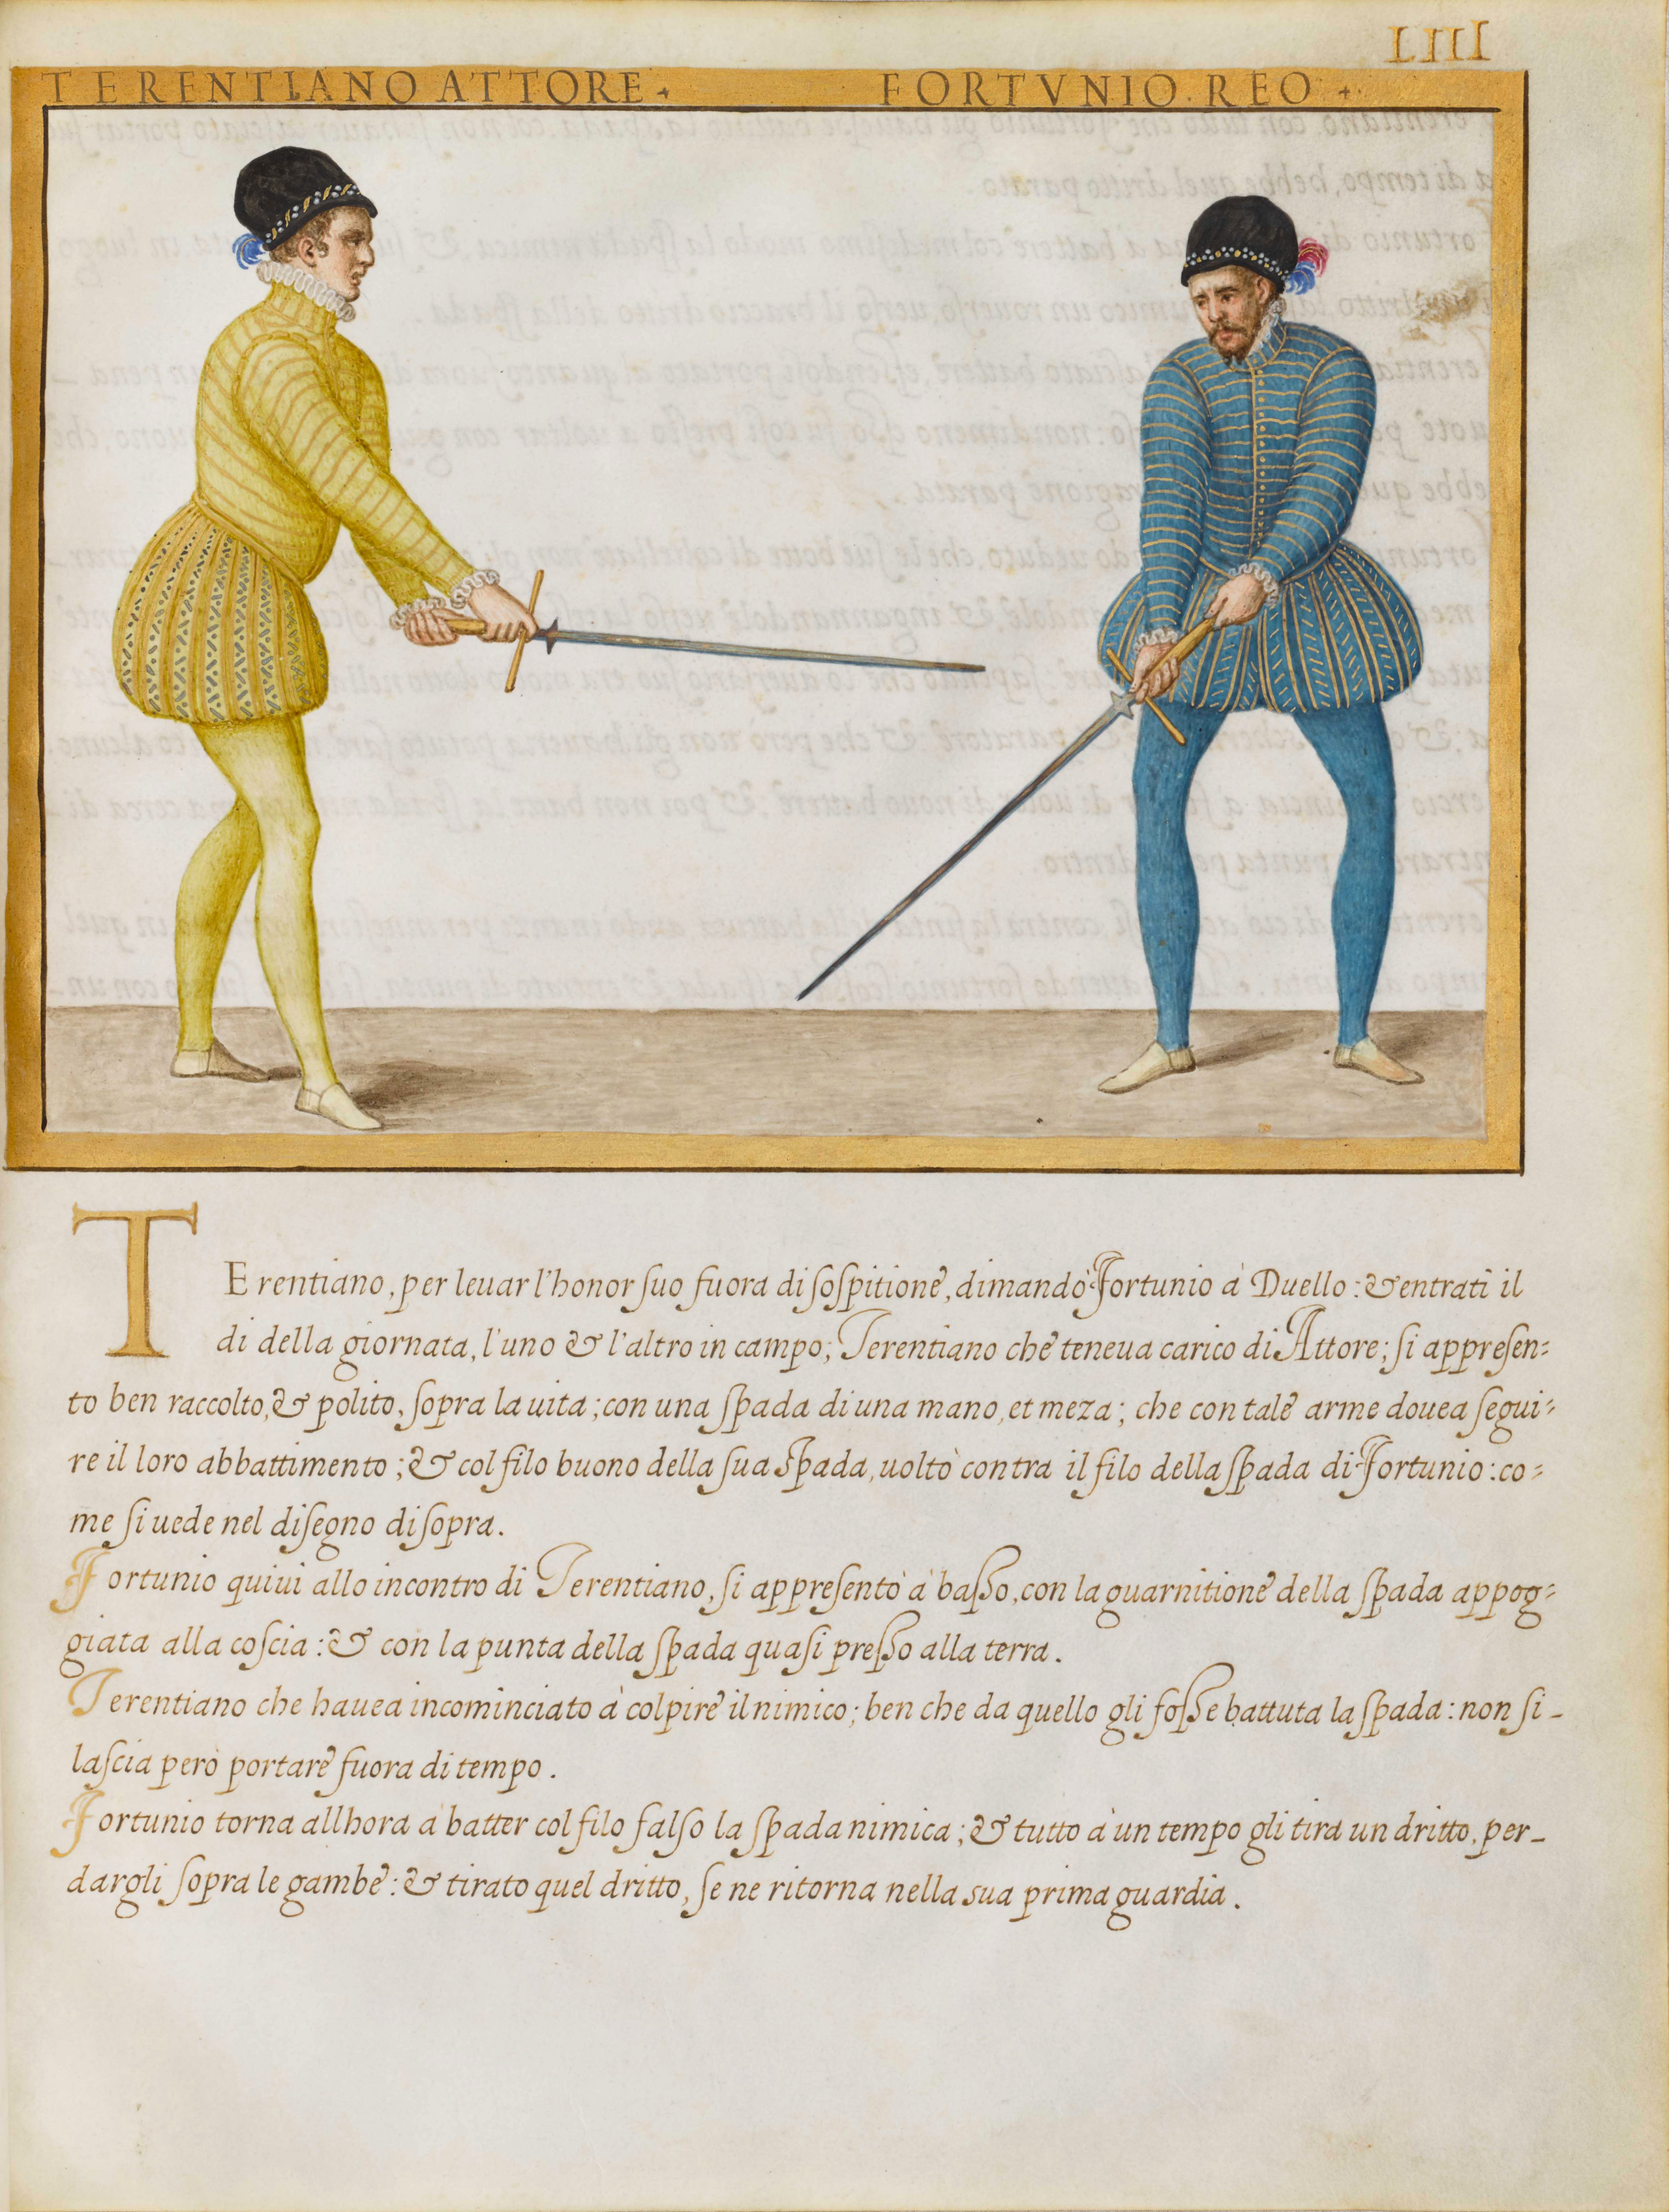 LIII
TERENTIANO ATTORE.
FORTVNIO. REO.
TErentiano, per leuar l'honor ſuo fuora di ſoſpitione, dimandò Fortunio à Duello: & entrati il
di della giornata, l'uno & l'altro in campo; Terentiano che teneua carico di Attore; ſi appreſen=
to ben raccolto, & polito, ſopra la uita; con una ſpada di una mano, et meza; che con tale arme douea ſegui=
re il loro abbattimento; & col filo buono della ſua Spada, uoltò contra il filo della ſpada di Fortunio: co=
me ſi uede nel diſegno di ſopra.
Fortunio quiui allo incontro di Terentiano, ſi appreſentò a baſſo, con la guarnitione della ſpada appog=
giata alla coſcia: & con la punta della ſpada quaſi preſſo alla terra.
Terentiano che hauea incominciato à colpire il nimico; ben che da quello gli foſſe battuta la ſpada: non ſi-
laſcia però portare fuora di tempo.
Fortunio torna allhora à batter col filo falſo la ſpada nimica; & tutto à un tempo gli tira un dritto, per-
dargli ſopra le gambe: & tirato quel dritto, ſe ne ritorna nella sua prima guardia.